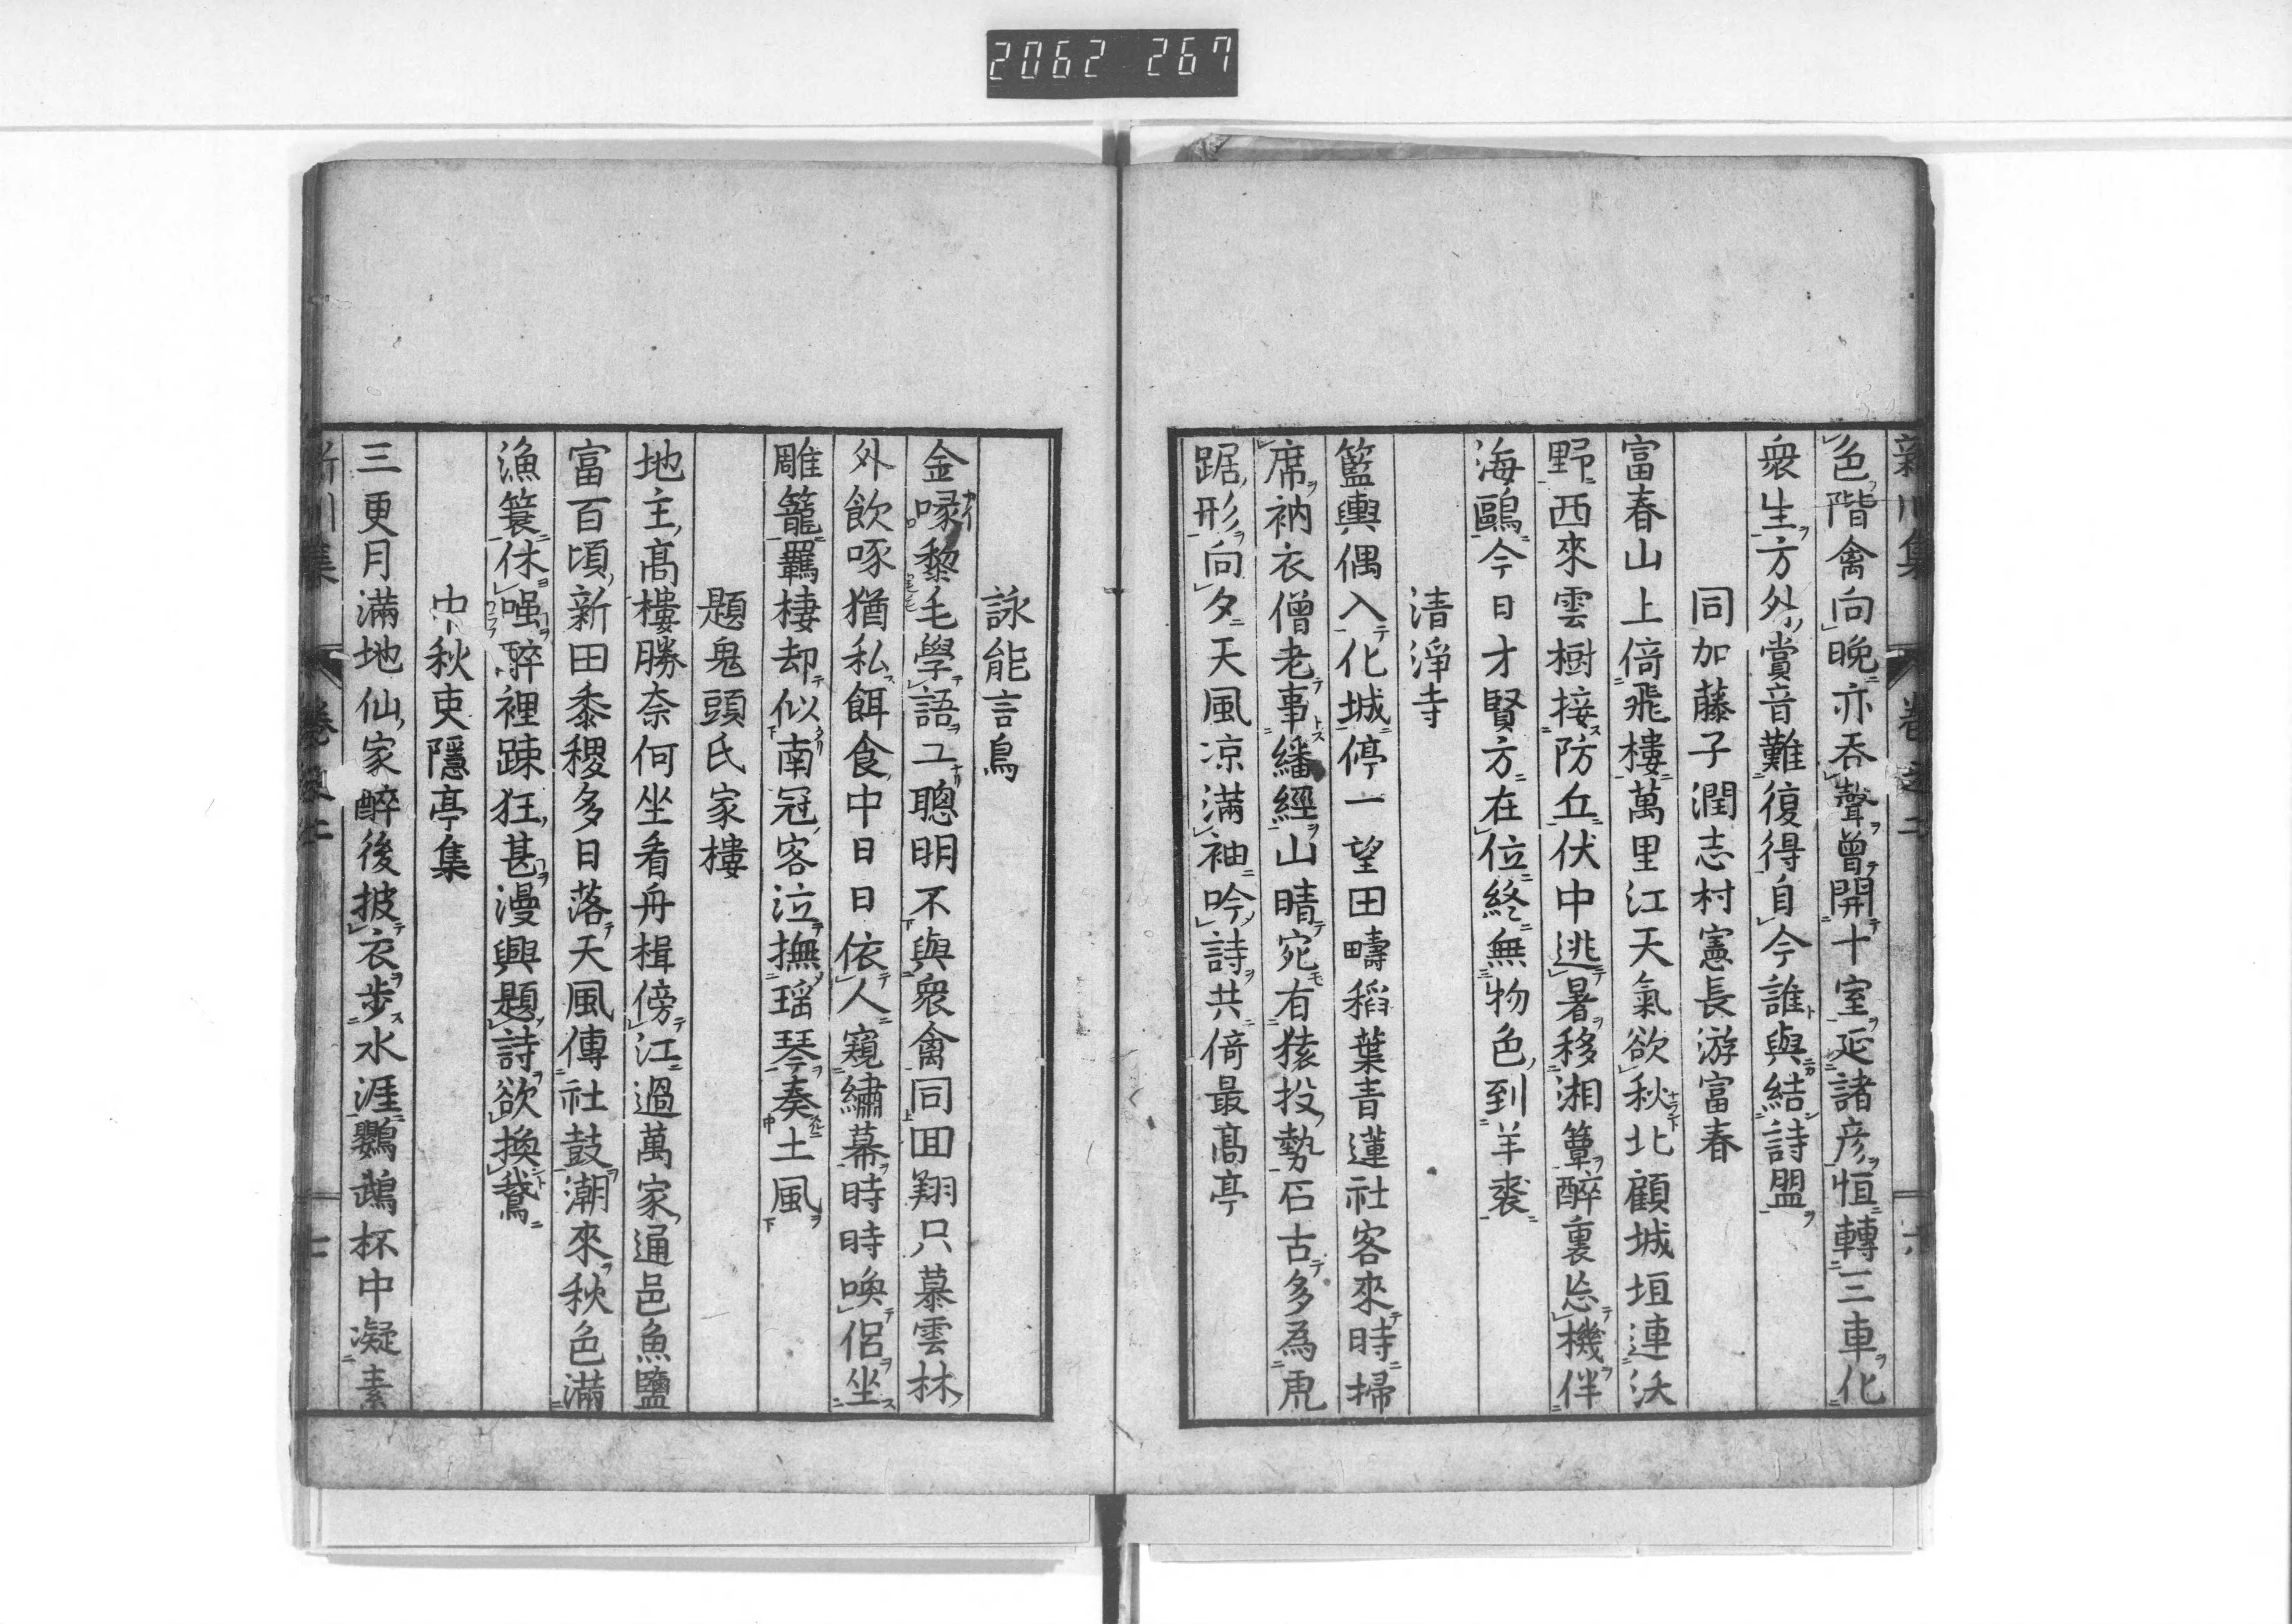 2062 267
新川集 卷之二 六
色階禽向晚亦吞聲曾開十室延諸彦恒轉三車化
衆生方外賞音難復得自今誰與結詩盟
同加藤子潤志村憲長游富春
富春山上倚飛樓萬里江天氣欲秋北顧城垣連沃
野西來雲樹接防丘伏中逃暑移湘簟醉裏忘機伴
海鷗今日才賢方在位終無物色到羊裘
清淨寺
籃輿偶入化城停一望田疇稻葉青蓮社客來時掃
席衲衣僧老事繙經山晴宛有猿投勢石古多為虎
踞形向夕天風凉滿袖吟詩共倚最高亭
詠能言鳥
金喙黎毛學語工聰明不與衆禽同囬翔只慕雲林
外飲啄猶私餌食中日日依人窺繡幕時時喚侶坐
雕籠羈棲却似南冠客泣撫瑶琴奏土風
題鬼頭氏家樓
地主高樓勝奈何坐看舟楫傍江過萬家通邑魚鹽
富百頃新田黍稷多日落天風傳社鼓潮來秋色滿
漁簑休嗤醉裡踈狂甚漫興題詩欲換鵞
中秋吏隱亭集
三更月滿地仙家醉後披衣步水涯鸚鵡杯中凝素
新川集 卷之二 七